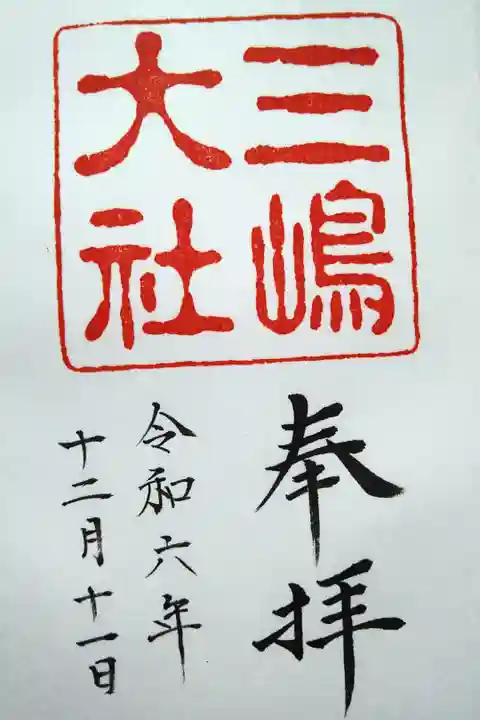 三嶋
大社
奉拝
令和六年
十二月十一日